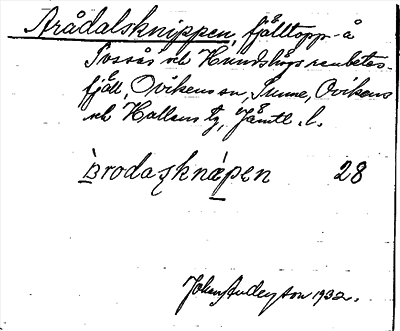 Arådalsknippen, fjälltopp å
Tossås och Hundshögs renbetes-
fjäll, Ovikens sn, Sunne, Ovikens
och Hallens tg, Jämtl. l.
Brodasknäpen 28
Johan Nordlander 1932.